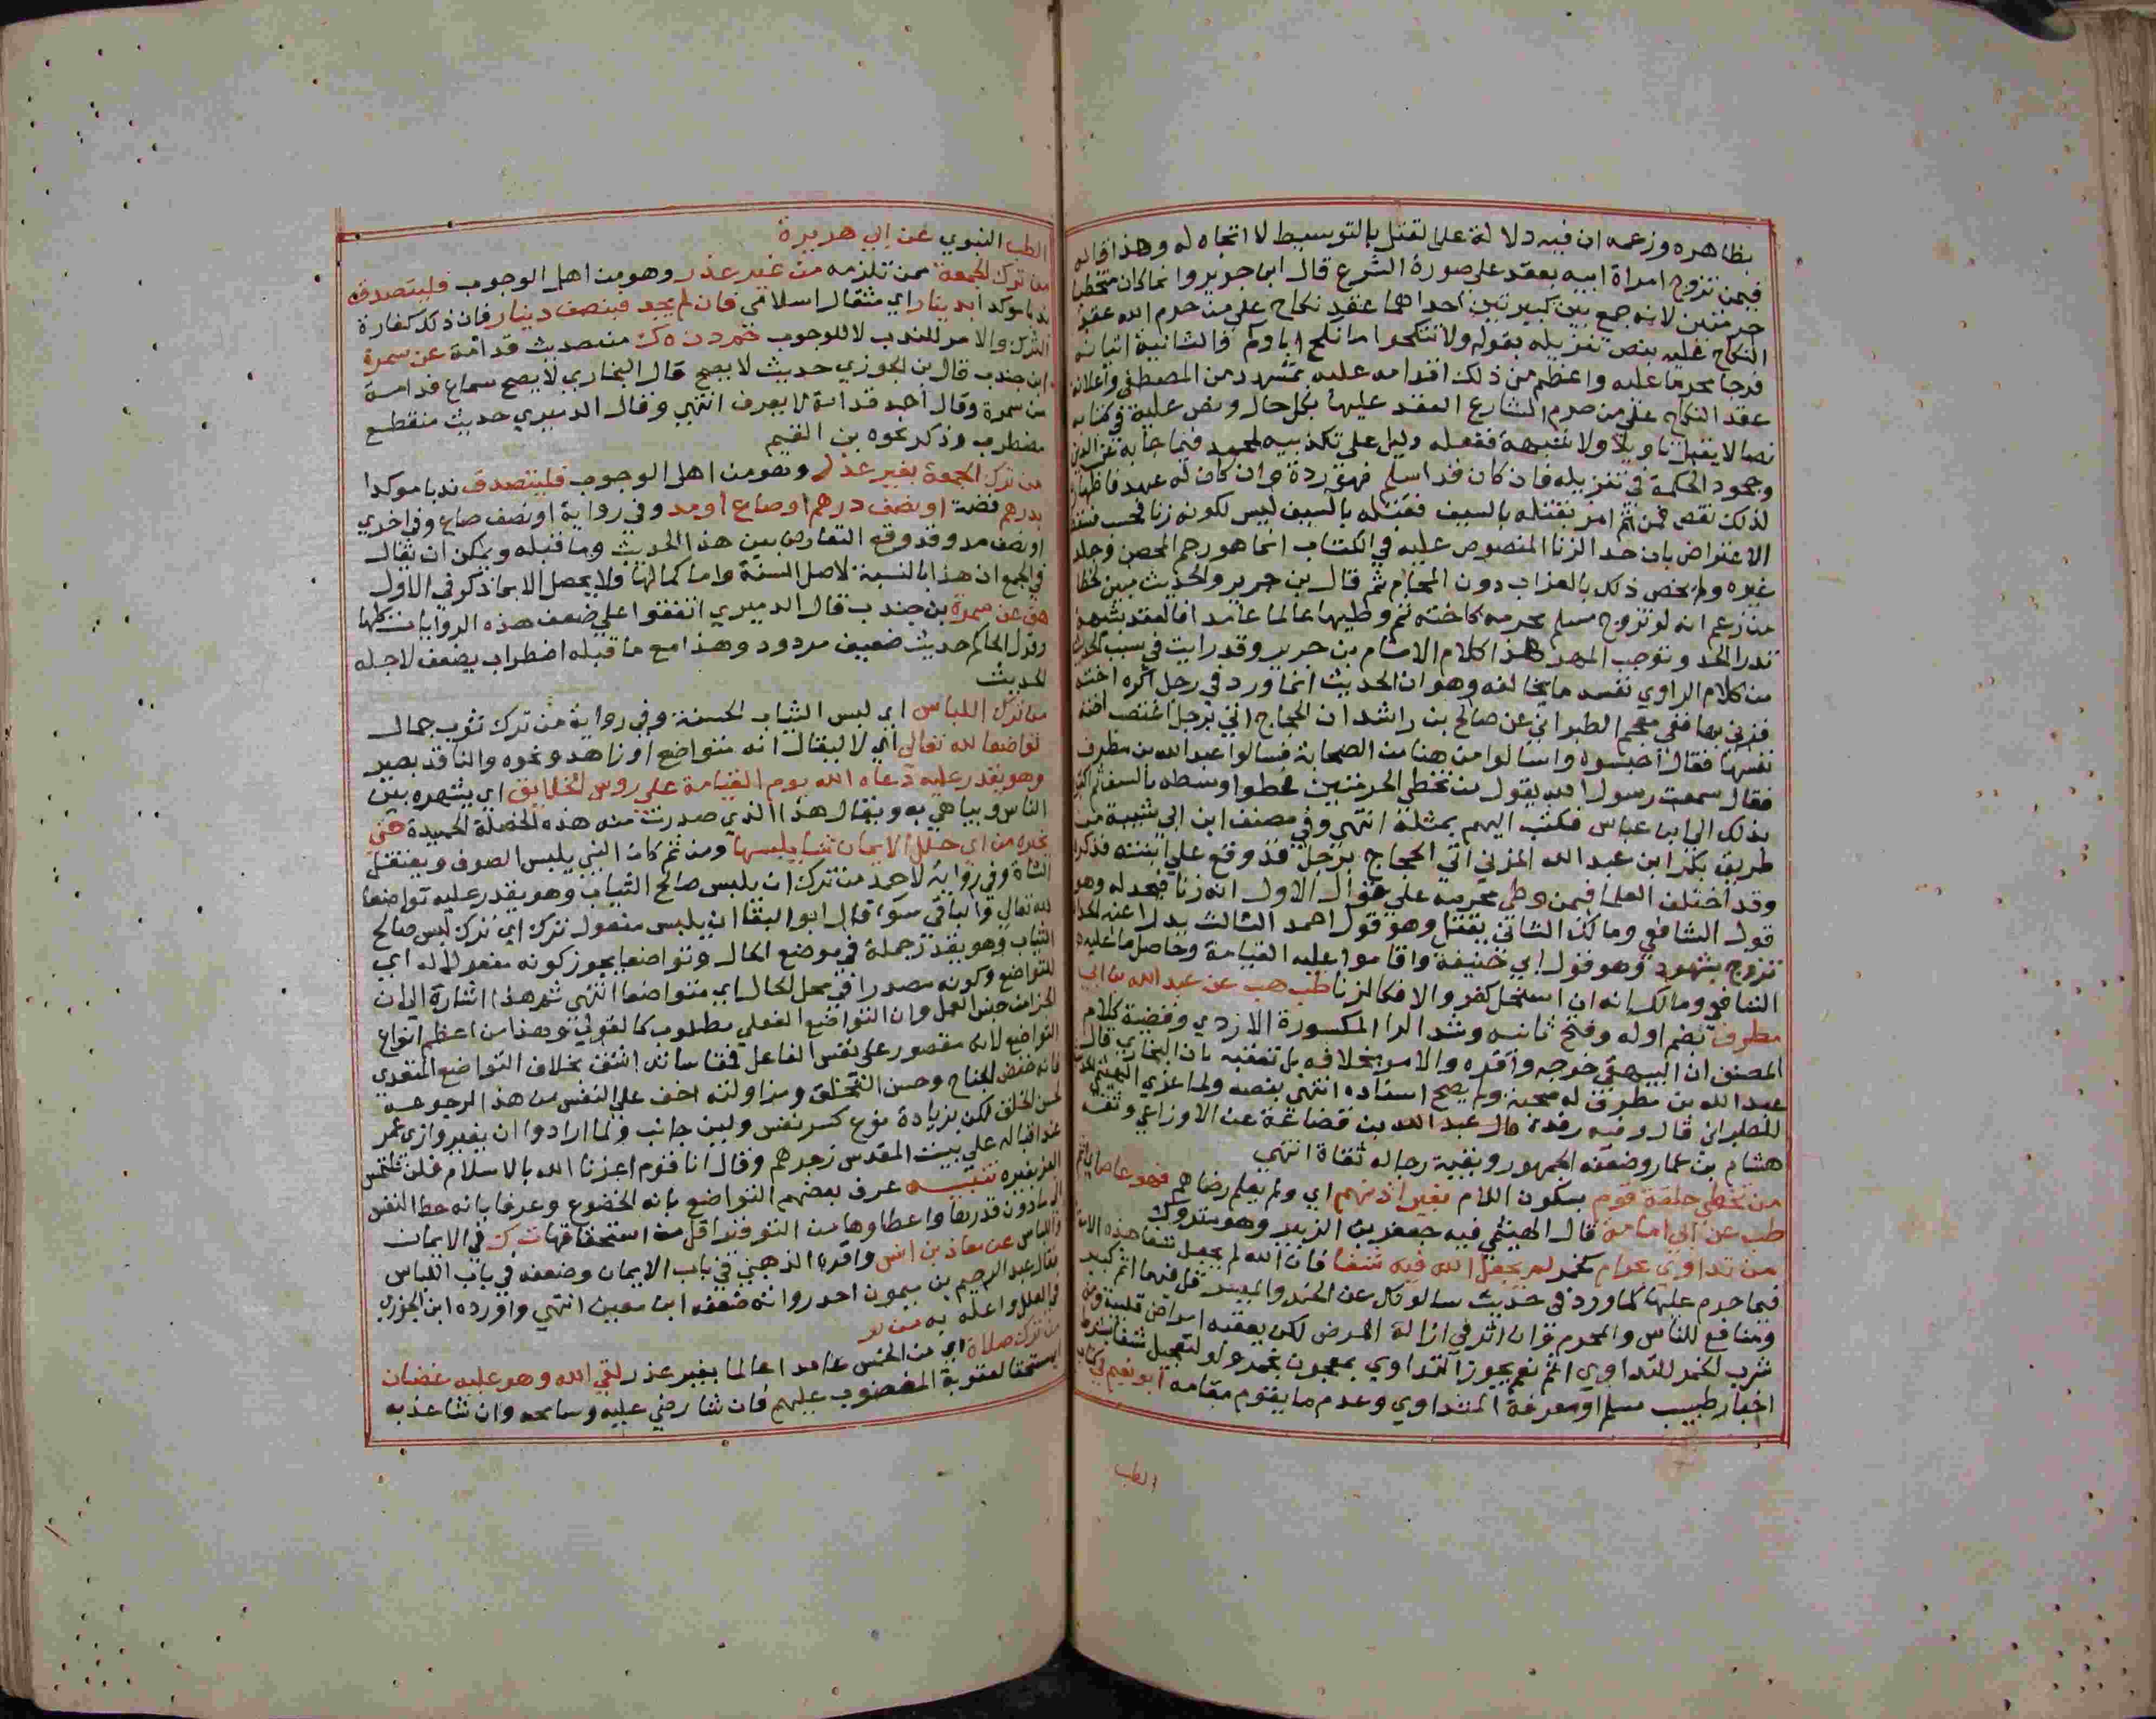 بظاهره وزعمه ان فيه دلالة على القتل بالتوسيط لا اتجاه له وهذا قاله
فيمن تزوج امراة ابيه بعقد على صورة الشرع قال ابن جرير وانما كان متخطيا
حرمتين لانه جمع بين كبيرتين احداهما عقد نكاح على من حرم الله عقد
النكاح عليه بنص تنزيله بقوله ولا تنكحوا ما نكح اباوكم والثانية اتيانه
فرجا محرما عليه واعظم من ذلك اقدامه عليه بمشهد من المصطفي واعلانه
عقد النكاح على من حرم الشارع العقد عليها بكل حال ونص عليه في كتابه
نصا لا يقبل تاويلا ولا شبهة ففعله دليل على تكذيبه لمحمد فيما جا به عن الله
وجحود الحكمة في تنزيله فان كان قد اسلم فهو ردة وان كان له عهد فاظهاره
لذلك نقص فمن ثم امر بقتله بالسيف فقتله بالسيف ليس لكونه زنا فحسب فسقط
الاعتراض بان حد الزنا المنصوص عليه في الكتاب انما هو رجم المحصن وجلد
غيره ولم يخص ذلك بالعزاب دون المحارم ثم قال بن جرير والحديث مبين لخطا
من زعم انه لو تزوج مسلم محرمه كاخته ثم وطيها عالما عامدا فالعقد شبهة
تدرا الحد وتوجب المهر هذا كلام الامام بن جرير وقد رايت في سبب الحديث
من كلام الراوي نفسه ما يخالفه وهو ان الحديث انما ورد في رجل اكره اخته
فزني بها ففي معجم الطبراني عن صالح بن راشد ان الحجاج اتي برجل اغتصب اخته
نفسها فقال احبسوه واسالوا من هنا من الصحابة فسالوا عبد الله بن مطرف
فقال سمعت رسول الله يقول من تخطي الحرمتين فخطوا وسطه بالسيف ثم كتب
بذلك الي ابن عباس فكتب اليهم بمثله انتهي وفي مصنف ابن ابي شيبة من
طريق بكر ابن عبد الله المزني اتي الحجاج برجل قد وقع على ابنته فذكره
وقد اختلف العلما فيمن وطي محرمه على اقوال الاول انه زنا فيحد له وهو
قول الشافعي ومالك الثاني يقتل وهو قول احمد الثالث يدرا عنه الحد ان
تزوج بشهود وهو قول ابي حنيفة واقاموا عليه القيامة وحاصل ما عليه
الشافعي ومالك انه ان استحل كفر والا فكالزنا طب هب عن عبد الله بن ابي
مطرف بضم اوله وفتح ثانيه وشد الرا المكسورة الازدي وقضية كلام
المصنف ان البيهقي خرجه واقره والامر بخلافه بل تعقبه بان البخاري قال
عبد الله بن مطرف له صحبة ولم يصح اسناده انتهي بنصه ولما عزي الهيثمي
للطبراني قال وفيه رفدة بن قضاعة عن الاوزاعي وثقه
هشام بن عمار وضعفه الجمهور وبقية رجاله ثقاة انتهي
من تخطي حلقة قوم بسكون اللام بغير اذنهم اي ولم يعلم رضاهم فهو عاص اي اثم
طب عن ابي امامة قال الهيثمي فيه جعفر بن الزبير وهو متروك
من تداوي بحرام كخمر لم يجعل الله فيه شفا فان الله لم يجعل شفا هذه الامة
فيما حرم عليها كما ورد في حديث يسالونك عن الخمر والميسر قل فيهما اثم كبير
ومنافع للناس والمحرم وان اثر في ازالة المرض لكن يعقبه امراض قلبية ومن
شرب الخمر للتداوي اثم نعم يجوز التداوي بمعجون بخمر ولو لتعجيل شفا بشرط
اخبار طبيب مسلم او معرفة المتداوي وعدم ما يقوم مقامه ابو نعيم في كتاب
الطب
الطب النبوي عن ابي هريرة
من ترك الجمعة ممن تلزمه من غير عذر وهو من اهل الوجوب فليتصدق
ندبا موكدا بدينار اي مثقال اسلامي فان لم يجد فبنصف دينار فان ذلك كفارة
الترك والامر للندب لا للوجوب حم د ن ه ك من حديث قدامة عن سمرة
ابن جندب قال بن الجوزي حديث لا يصح قال البخاري لا يصح سماع قدامة
من سمرة وقال احمد قدامة لا يعرف انتهي وقال الدميري حديث منقطع
مضطرب وذكر نحوه بن القيم
من ترك الجمعة بغير عذر وهو من اهل الوجوب فليتصدق ندبا موكدا
بدرهم فضة او نصف درهم او صاع او مد وفي رواية او نصف صاع وفي اخري
او نصف مد وقد وقع التعارض بين هذا الحديث وما قبله ويمكن ان يقال
في الجمع ان هذا بالنسبة لاصل السنة واما كمالها فلا يحصل الا بما ذكر في الاول
هق عن سمرة بن جندب قال الدميري اتفقوا على ضعف هذه الروايات كلها
وقول الحاكم حديث ضعيف مردود وهذا مع ما قبله اضطراب يضعف لاجله
الحديث
من ترك اللباس اي لبس الثياب الحسنة وفي رواية من ترك ثوب جمال
تواضعا لله تعالي اي لا ليقال انه متواضع او زاهد ونحوه والناقد بصير
وهو يقدر عليه دعاه الله يوم القيامة على روس الخلايق اي يشهره بين
الناس ويباهي به ويقال هذا الذي صدرت منه هذه الخصلة الحميدة حتي
يخيره من اي حلل الايمان شا يلبسها ومن ثم كان النبي يلبس الصوف ويعتقل
الشاة وفي رواية لاحمد من ترك ان يلبس صالح الثياب وهو يقدر عليه تواضعا
لله تعالي والباقي سوا، قال ابو البقا ان يلبس مفعول ترك اي ترك لبس صالح
الثياب وهو يقدر جملة في موضع الحال وتواضعا يجوز كونه مفعولا له اي
للتواضع وكونه مصدرا في محل الحال اي متواضعا انتهي ثم هذا اشارة الي ان
الجزا من جنس العمل وان التواضع الفعلي مطلوب كالقولي وهذا من اعظم انواع
التواضع لانه مقصور على نفس الفاعل فمقاساته اشق بخلاف التواضع المتعدي
فانه خفض الجناح وحسن التخلق ومزاولته اخف على النفس من هذا لرجوعه
لحسن الخلق لكن بزيادة نوع كسر نفس ولين جانب ولما ارادوا ان يغيروا زي عمر
عند اقباله على بيت المقدس زجرهم وقال انا قوم اعزنا الله بالاسلام فلن نلتمس
العز بغيره تنبيه عرف بعضهم التواضع بانه الخضوع وعرفا بانه حط النفس
الي ما دون قدرها واعطاوها من التوقير اقل من استحقاقها ت ك في الايمان
واللباس عن معاذ بن انس واقره الذهبي في باب الايمان وضعفه في باب اللباس
فقال عبد الرحيم بن ميمون احد رواته ضعفه ابن معين انتهي واورده ابن الجوزي
في العلل واعله به
من ترك صلاة اي من الخمس عامدا عالما بغير عذر لقي الله وهو عليه غضبان
مستحقا لعقوبة المغضوب عليهم فان شا رضي عليه وسامحه وان شا عذبه